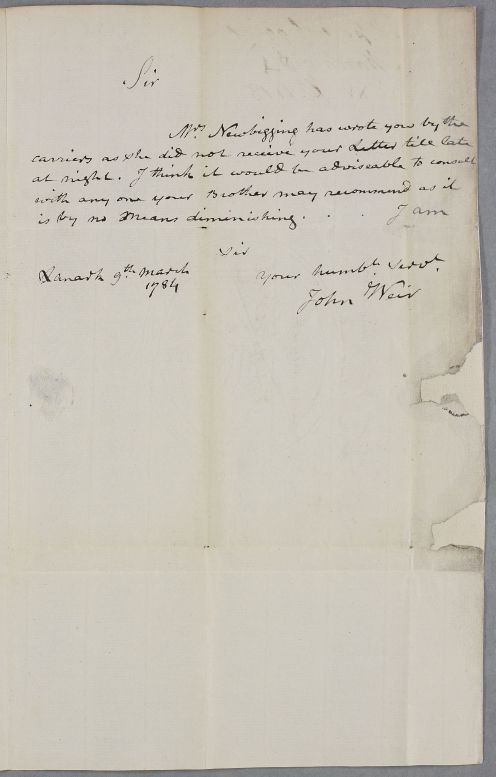 Sir
Mrs Newbigging has wrote you by the
carriers as she did not receive your Letter till late
at night. I think it would be adviseable to consult
with any one your Brother may recommend as it
is by no means diminishing. . . I am
Sir
Lanark 9th March your humble Servt.
1784 John Weir